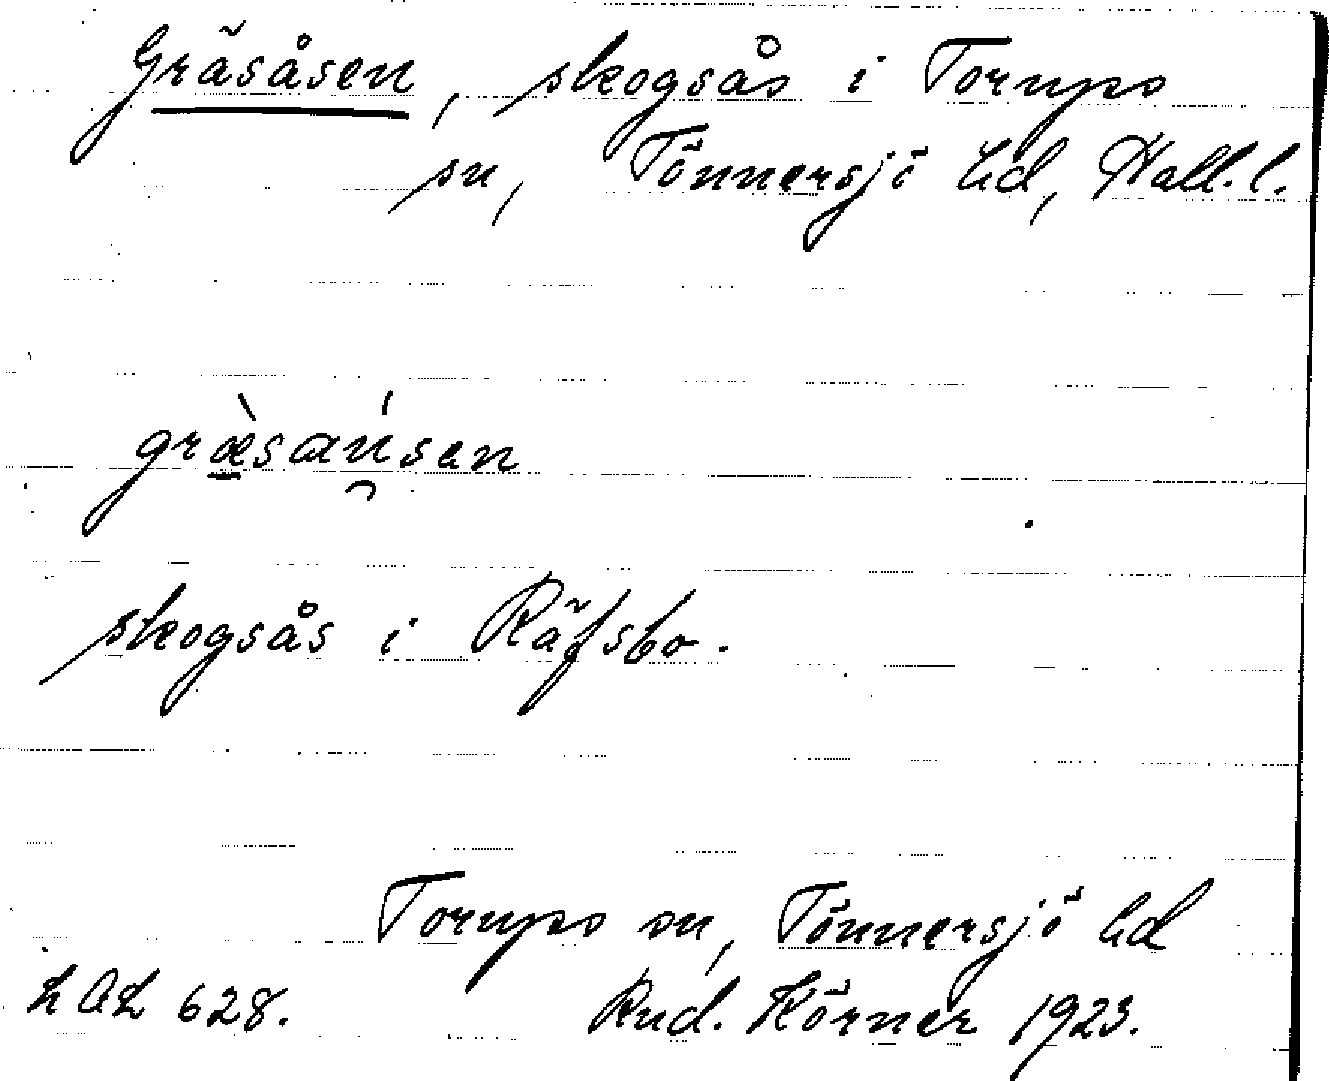 Gräsåsen, skogsås i Torups
sn, Tönnersjö hd, Hall. l.
græ̱̀sɑú̯sen
skogsås i Räfsbo.
Torups sn, Tönnersjö hd
LAL 628. Rud. Körner 1923.